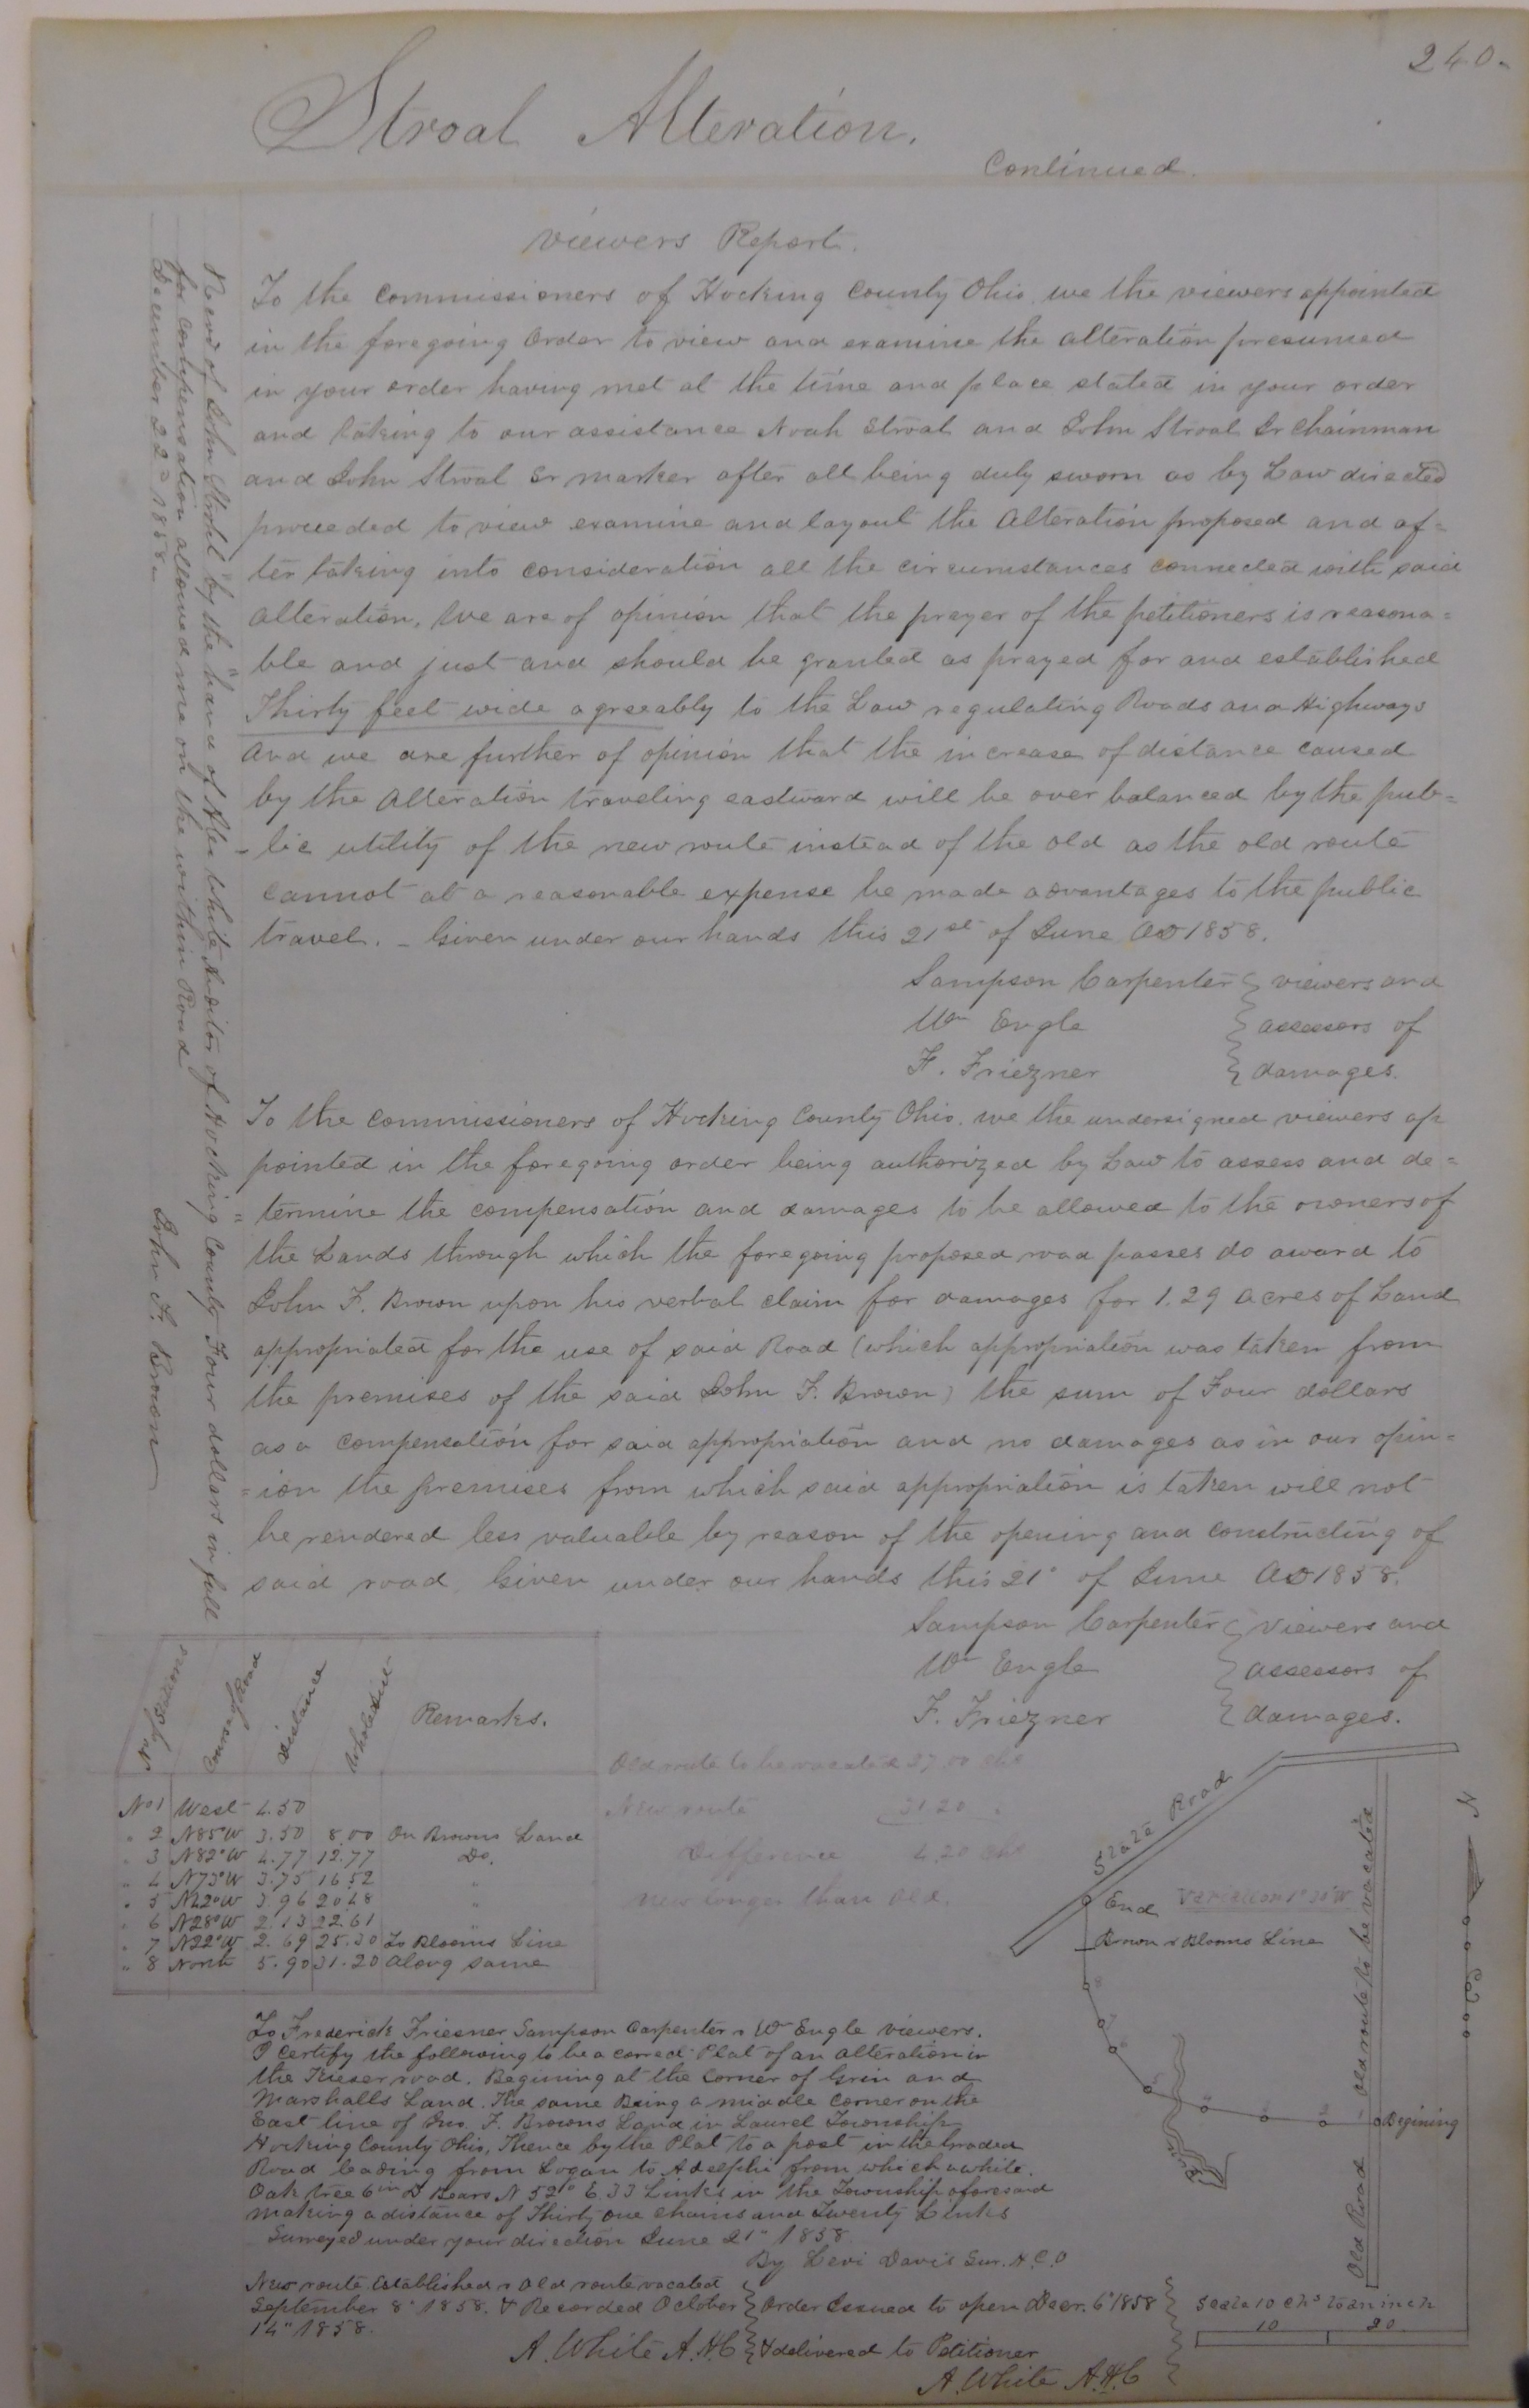 240.
Stroal Alteration.
Continued.
viewers Report.
To the Commissioners of Hocking County Ohio. we the viewers appointed
in the foregoing Order to view and examine the alteration presumed
in your order having met at the time and place stated in your order
and taking to our assistance Noah Stroal and John Stroal Jr Chainman
and John Stroal Sr marker after all being duly sworn as by Law directed
proceeded to view examine and layout the Alteration proposed and af=
ter taking into consideration all the circumstances connected with said
alteration, We are of opinion that the prayer of the petitioners is reasona=
ble and just and should be granted as prayed for and established
Thirty feet wide agreeably to the Law regulating Roads and Highways
And we are further of opinion that the increase of distance caused
by the Alteration traveling eastward will be over balanced by the pub=
-lic utility of the new route instead of the old as the old route
cannot at a reasonable expense be made advantages to the public
travel. - Given under our hands this 21st of June AD 1858.
Sampson Carpenter } viewers and
Wm Engle } assessors of
F. Friezner } damages.
To the Commissioners of Hocking County Ohio. we the undersigned viewers ap
pointed in the foregoing order being authorized by Law to assess and de=
"termine the compensation and damages to be allowed to the owners of
the Lands through which the foregoing proposed road passes do award to
John F. Brown upon his verbal claim for damages for 1.29 acres of Land
appropriated for the use of said Road (which appropriation was taken from
the premises of the said John F. Brown) the sum of Four dollars
as a compensation for said appropriation and no damages as in our opin=
=ion the premises from which said appropriation is taken will not
be rendered less valuable by reason of the opening and constructing of
said road. Given under our hands this 21" of June AD 1858.
Sampson Carpenter } viewers and
Wm Engle } assessors of
F. Friezner } damages.
Recvd of John Strohl by the hand of Alex White Auditor of Hocking County Four dollars in full
for compensation allowed me on the within Road
December 22nd 1858.-
John F. Brown
Course of Road Distance Whole dist Remarks.
No 1 West 4.50
" 2 N85°W 3.50 8.00 On Browns Land
" 3 N82°W 4.77 12.77 Do.
" 4 N73°W 3.75 16.52 "
" 5 N42°W 3.96 20.48 "
" 6 N28°W 2.13 22.61 "
" 7 N22°W 2.69 25.30 To Blooms Line
" 8 North 5.90 31.20 Along same
Old route to be vacated 27.00 chs
New route 31.20 "
Difference 4.20 chs
New longer than old.
State Road
End
Variation 1°30'W
Brown & Blooms Line
8
7
6
5
4
3
2
1
Begining
Run
Old Road
Old route to be vacated
N
To Frederick Friesner Sampson Carpenter & Wm Engle viewers.
I certify the following to be a correct Plat of an alteration in
the Kieser road. Begining at the Corner of Grin and
Marshalls Land. The same Being a middle Corner on the
East line of Jno. F. Browns Land in Laurel Township
Hocking County Ohio, Thence by the Plat to a post in the Graded
Road leading from Logan to Adelphi from which a white
Oak tree 6 in D Bears N 52° E. 33 Links in the Township aforesaid
making a distance of Thirty one chains and Twenty Links
Surveyed under your direction June 21" 1858
By Levi Davis Sur. H.C.O
New route Established & Old route vacated
September 8" 1858. & Recorded October
14" 1858.
A. White A.H.C
Order Issued to open Decr. 6" 1858
& delivered to Petitioner
A. White A.H.C
Scale 10 chs to an inch
10 20